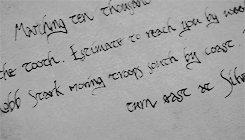 Marching ten thousand
the tooth. Estimate to reach you by week
Robb Stark moving troops south by coast.
turn east at